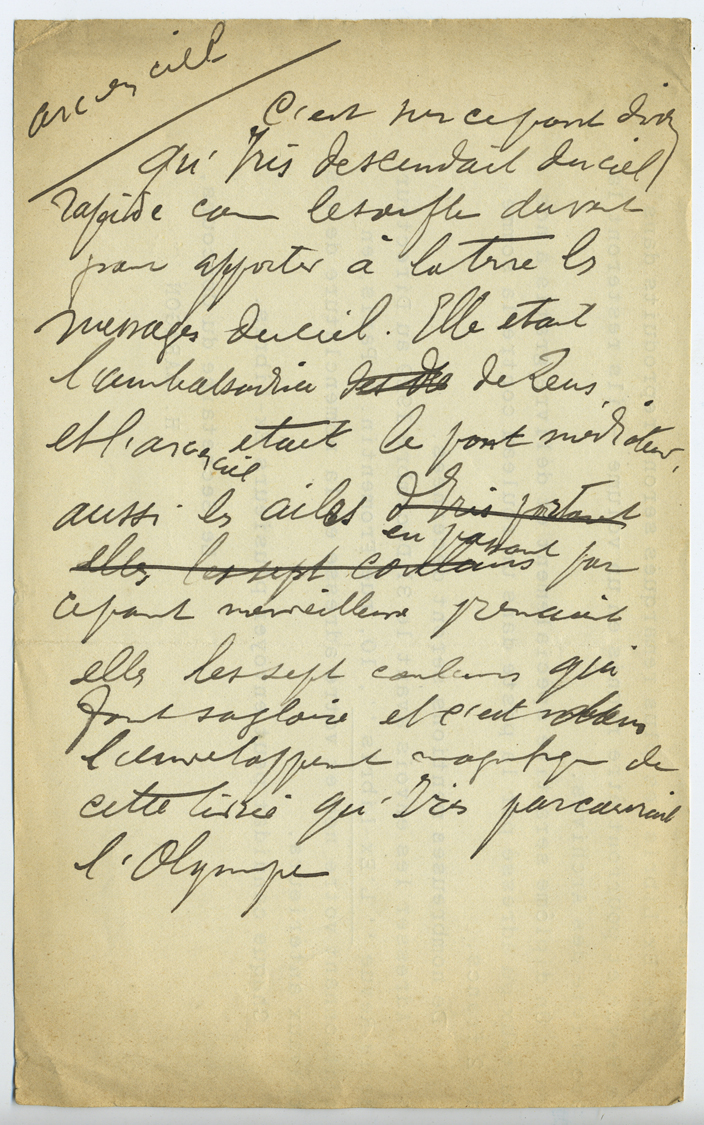 arc en ciel
C'est sur ce pont divin
qu'Iris descendait du ciel
rapide com le souffle du vent
pour apporter à la terre les
messages du ciel. Elle etait
l'ambassadrice de Zeus,
et l'arc en ciel etait le pont médiateur,
aussi les ailes d'Iris portant
en passant
elles les sept couleurs par
ce pont merveilleux prenaient
elles les sept couleurs qui
font sa gloire et c'est dans
l'enveloppement magnifique de
cette qu'Iris parcourait
l'Olympe